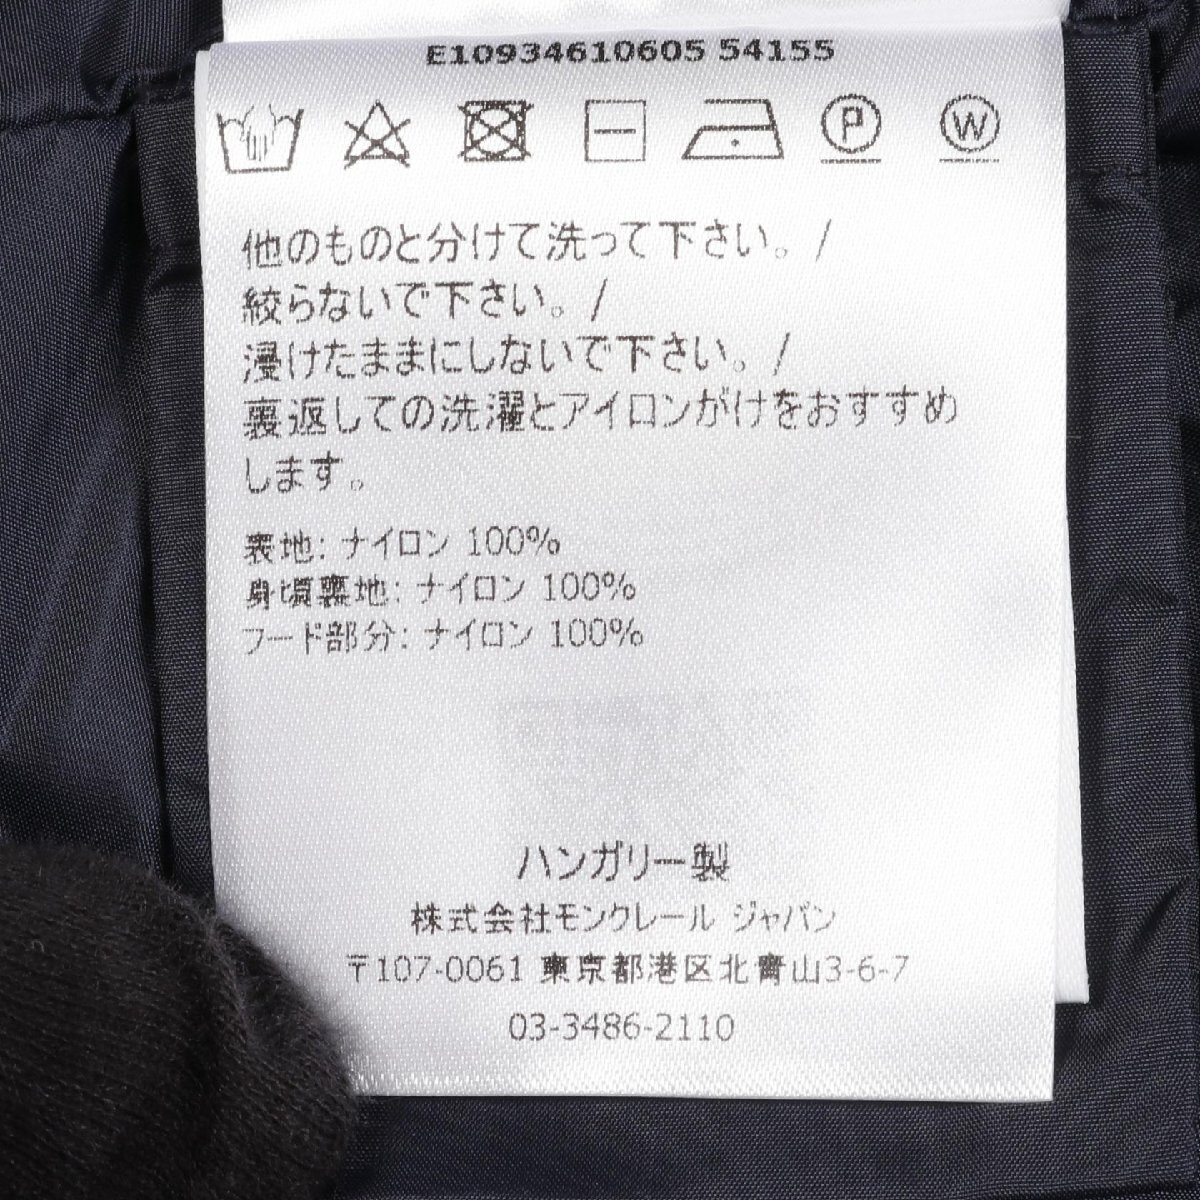 E10934610605 54155
P W
他のものと分けて洗って下さい。/
絞らないで下さい。/
浸けたままにしないで下さい。/
裏返しての洗濯とアイロンがけをおすすめ
します。
表地: ナイロン 100%
身頃裏地: ナイロン 100%
フード部分: ナイロン 100%
ハンガリー製
株式会社モンクレール ジャパン
〒107-0061 東京都港区北青山3-6-7
03-3486-2110